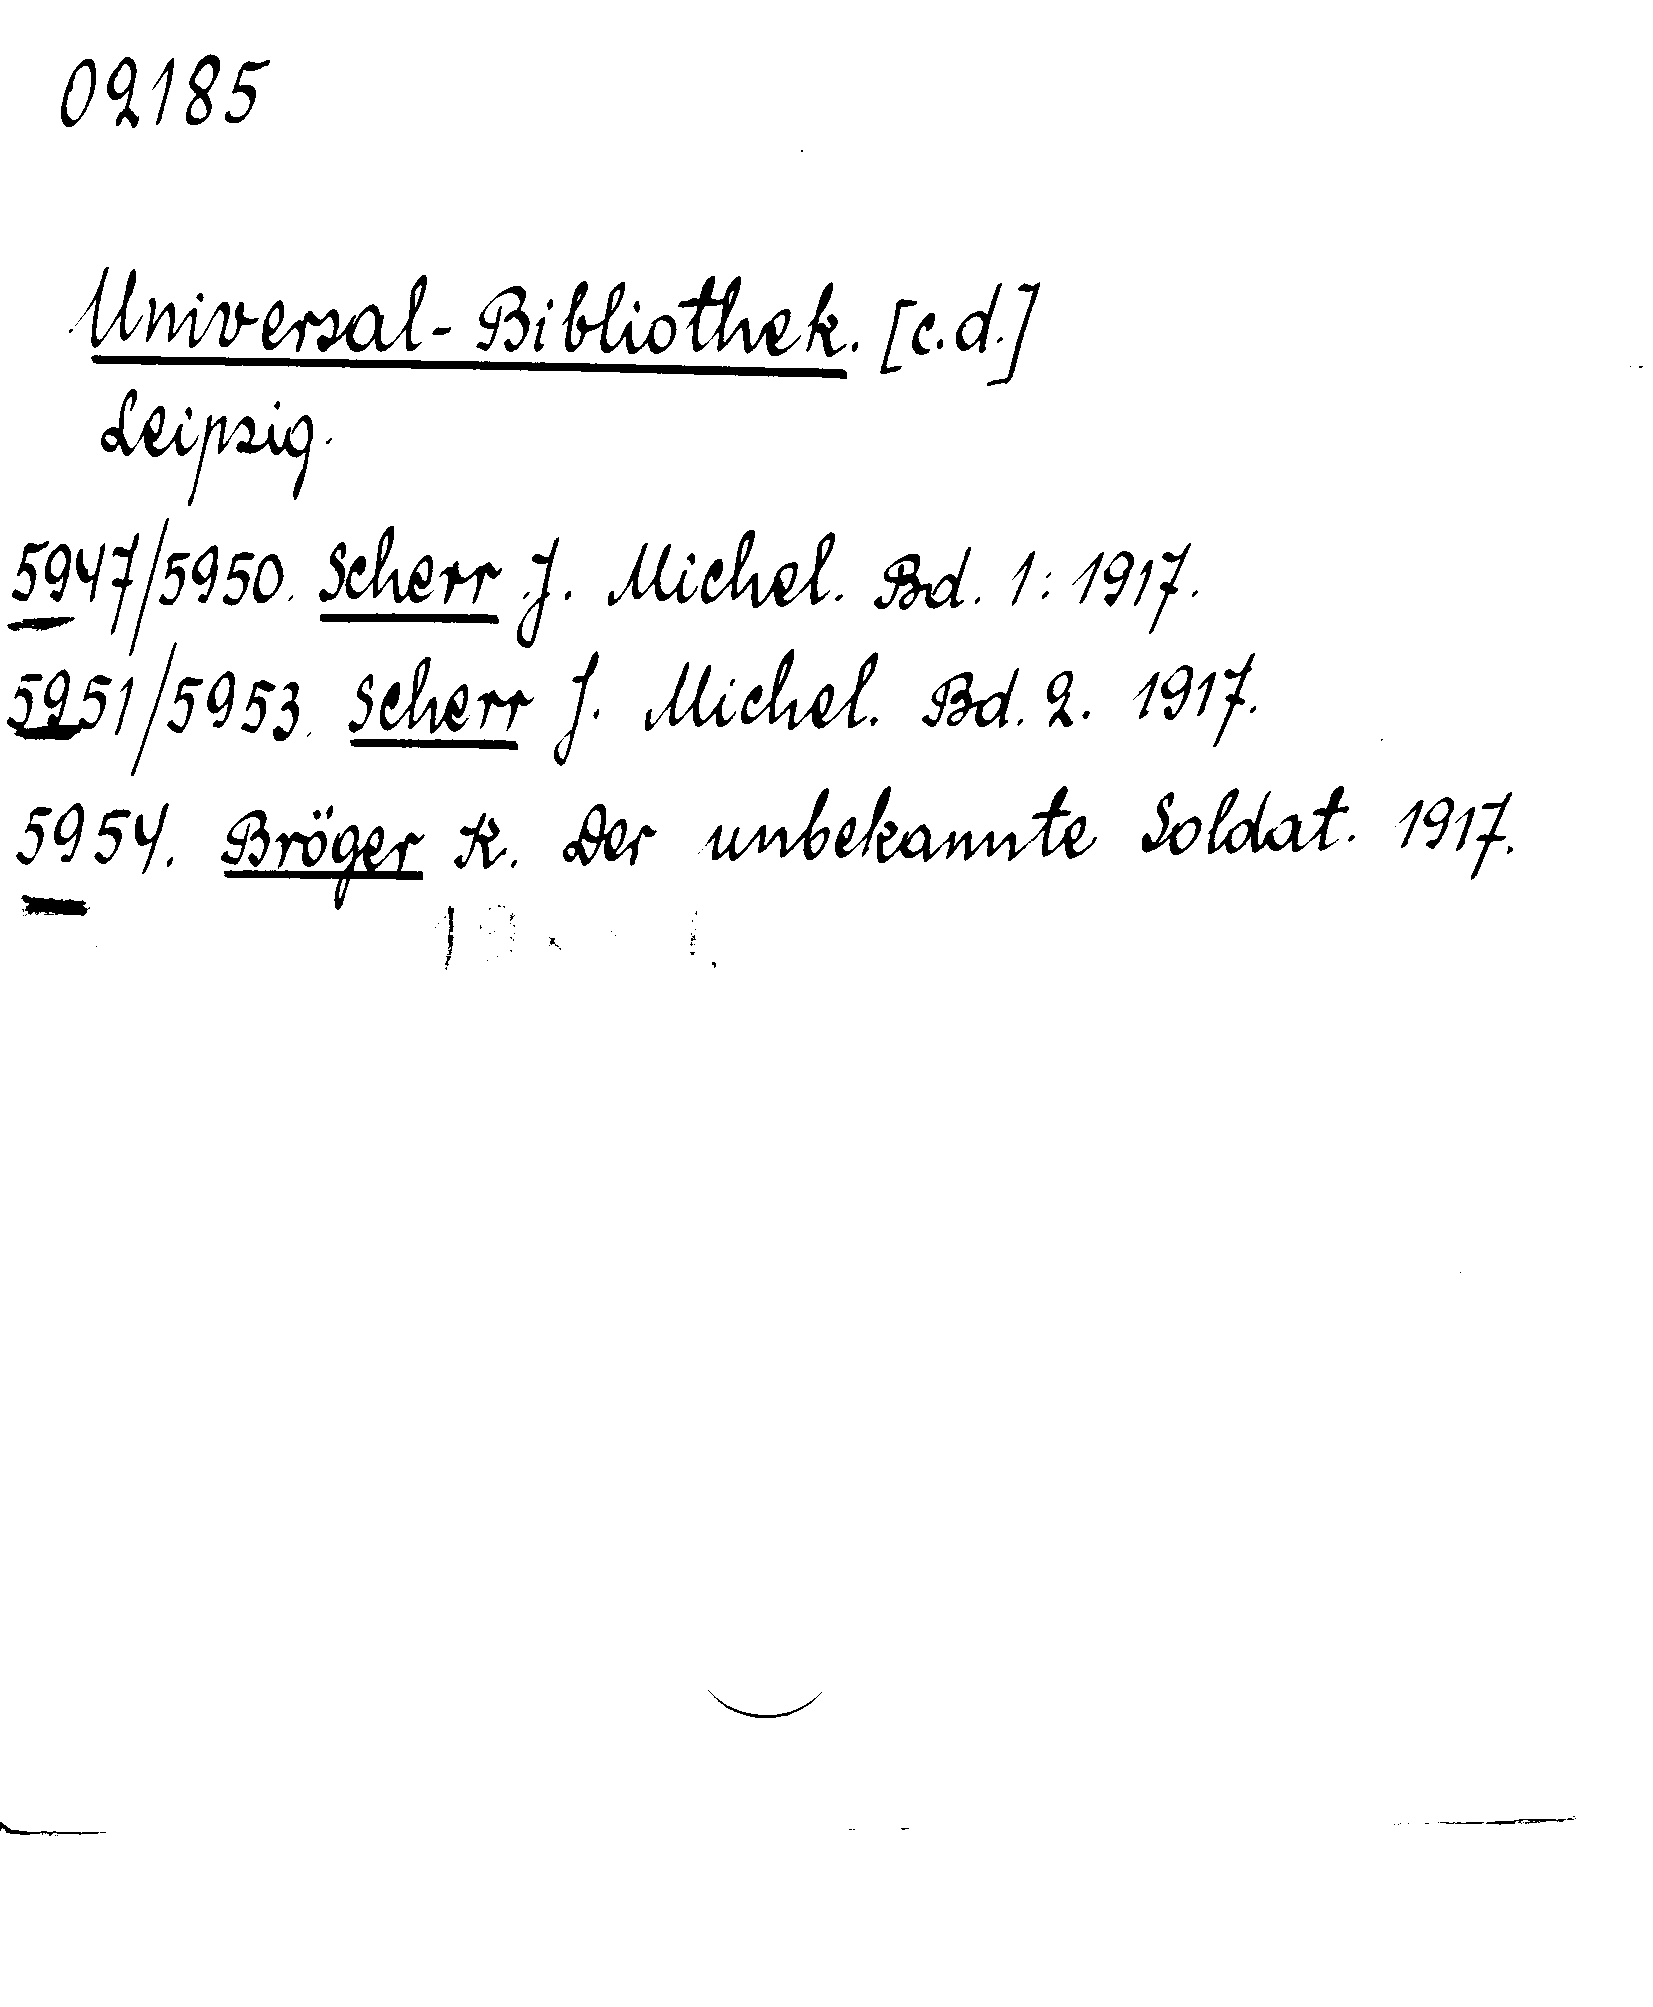 02185
Universal-Bibliothek. [c.d.]
Leipzig.
5947/5950. Scherr J. Michel. Bd. 1: 1917.
5951/5953. Scherr J. Michel. Bd. 2. 1917.
5954. Bröger K. Der unbekannte Soldat. 1917.